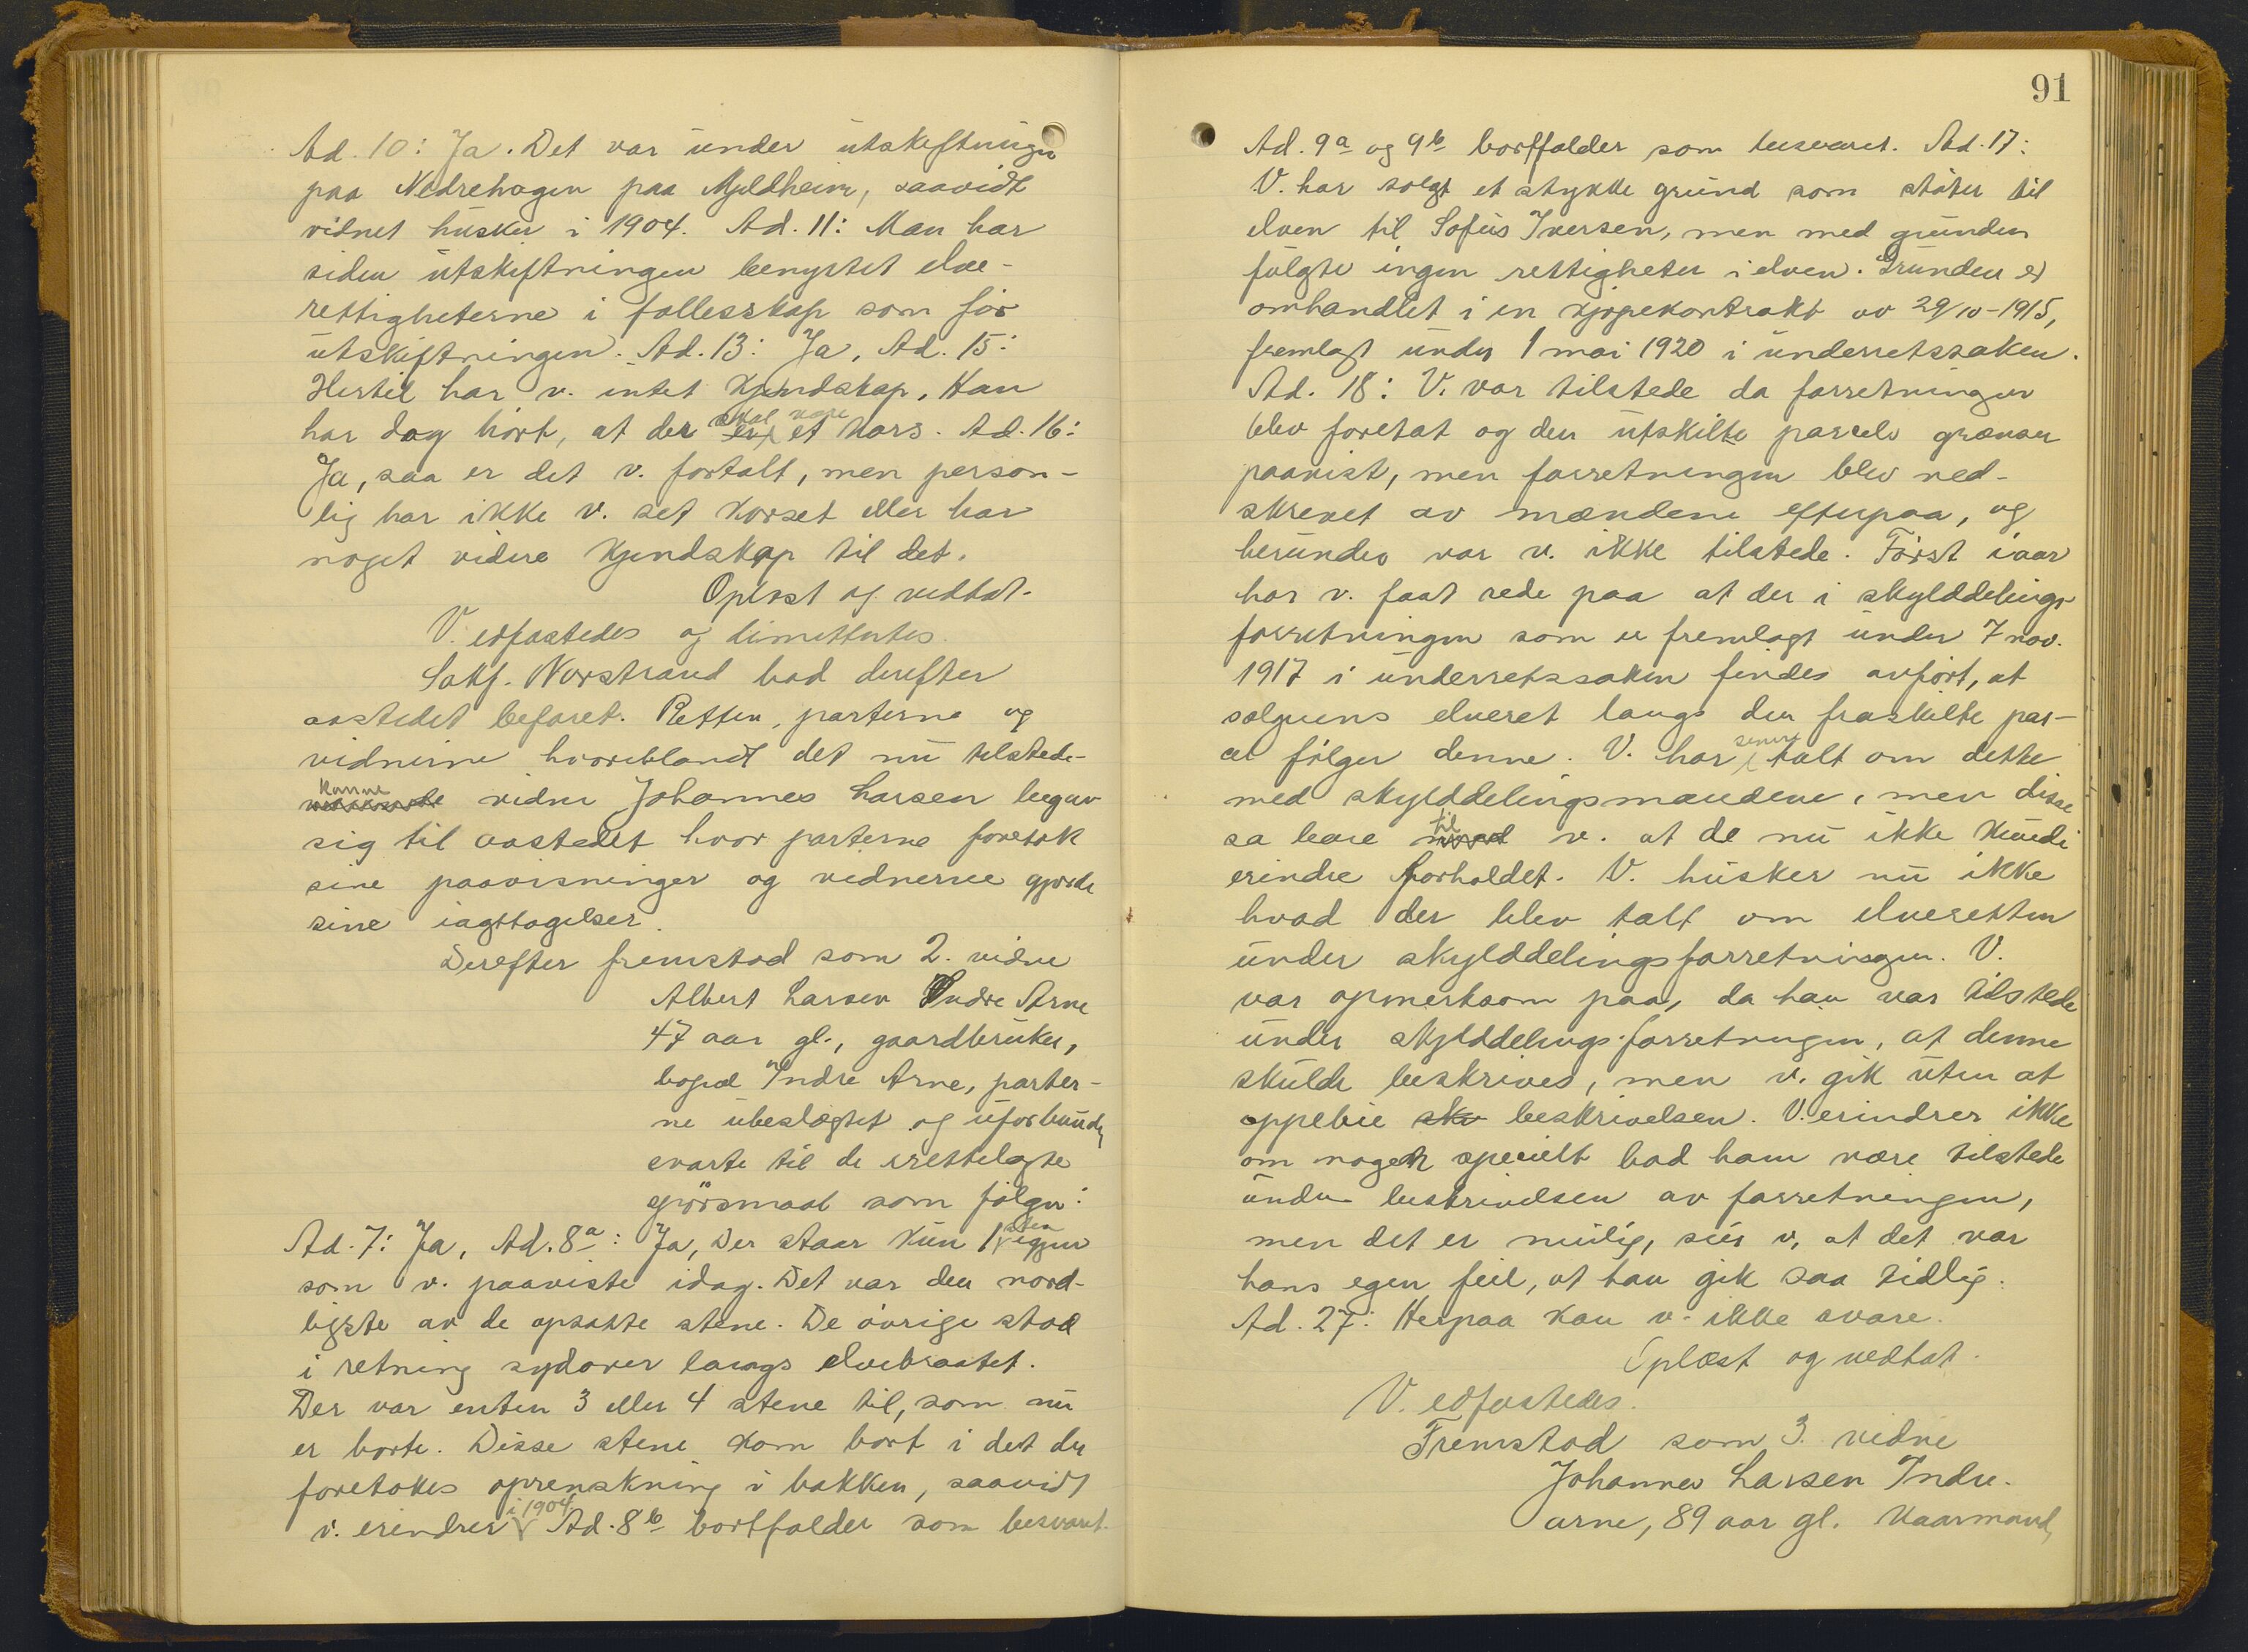 Ad. 10: Ja. Det var under utskiftningen
paa Nedrehagen paa Mjeldheim, saavidt
vidnet husker i 1904. Ad. 11: Man har
siden utskiftningen benyttet elve-
rettigheterne i fællesskap som før
utskiftningen. Ad. 13: Ja, Ad. 15:
Hertil har v. intet kjendskap, Han
har dog hørt, at der skal være et kors. Ad. 16:
Ja, saa er det v. fortalt, men person-
lig har ikke v. set korset eller har
noget videre kjendskap til det.
Oplæst og vedtat.
V. edfæstedes og dimittertes.
Sakf. Norstrand bad derefter
aastedet befaret. Retten, parterne og
vidnerne hvoriblandt det nu tilstede-
komne vidne Johannes Larsen begav
sig til aastedet hvor parterne foretok
sine paavisninger og vidnerne gjorde
sine iagttagelser.
Derefter fremstod som 2. vidne
Albert Larsen Indre Arne
47 aar gl., gaardbruker,
bopæl Indre Arne, parter-
ne ubeslægtet og uforbunden
svarte til de irettelagte
spørsmaal som følger:
Ad. 7: Ja, Ad. 8a: Ja, Der staar kun 1 sten igjen
som v. paaviste idag. Det var den nord-
ligste av de opsatte stene. De øvrige stod
i retning sydover langs elvebraatet.
Der var enten 3 eller 4 stene til, som nu
er borte. Disse stene kom bort i det der
foretokes oprenskning i bakken, saavidt
v. erindrer i 1904. Ad. 8b bortfalder som besvaret.
91
Ad. 9a og 9b bortfalder som besvaret. Ad. 17:
V. har solgt et stykke grund som støter til
elven til Sofus Iversen, men med grunden
fulgte ingen rettigheter i elven. Grunden er
omhandlet i en kjøpekontrakt av 29/10-1915,
fremlagt under 1 mai 1920 i underretssaken.
Ad. 18: V. var tilstede da forretningen
blev foretat og den utskilte parcels grænser
paavist, men forretningen blev ned-
skrevet av mændene efterpaa, og
herunder var v. ikke tilstede. Først iaar
har v. faat rede paa at der i skylddelings-
forretningen som er fremlagt under 7 nov.
1917 i underretssaken findes anført, at
sælgerens elveret langs den fraskilte par-
cel følger denne. V. har senere talt om dette
med skylddelingsmændene, men disse
sa bare til v. at de nu ikke kunde
erindre forholdet. V. husker nu ikke
hvad der blev talt om elveretten
under skylddelingsforretningen. V.
var opmerksom paa, da han var tilstede
under skylddelings-forretningen, at denne
skulde beskrives, men v. gik uten at
oppebie sko beskrivelsen. V. erindrer ikke
om nogen specielt bad ham være tilstede
under beskrivelsen av forretningen,
men det er mulig, sier v, at det var
hans egen feil, at han gik saa tidlig.
Ad. 27: Herpaa kan v. ikke svare.
Oplæst og vedtat.
V. edfæstedes.
Fremstod som 3. vidne
Johannes Larsen Indre-
arne, 89 aar gl. Kaarmand,